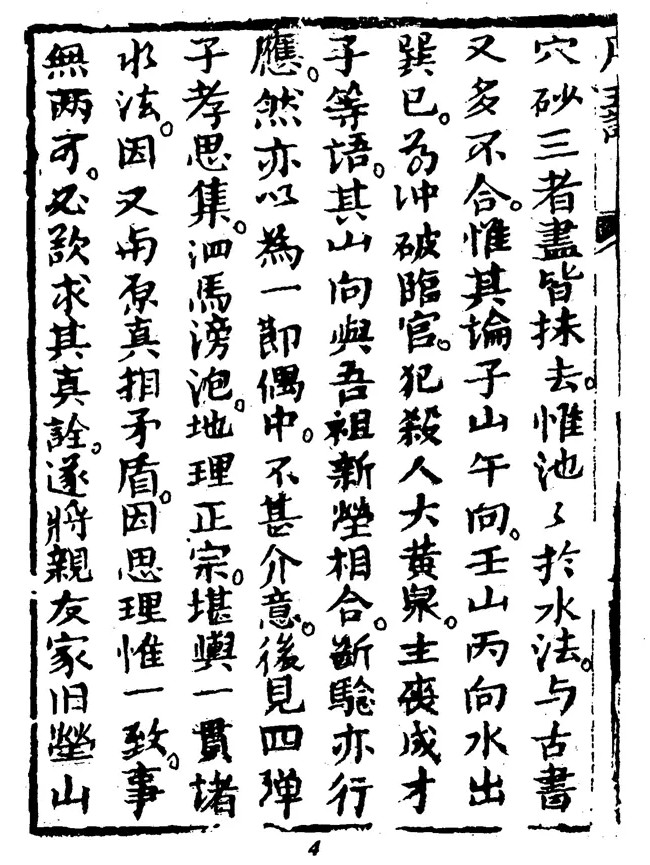 穴砂三者盡皆抹去。惟沲々扵水法。与古書
又多不合。惟其塕子山午向。壬山丙向水出
巽巳。為冲破臨官。犯殺人大黄泉。主喪成才
子等語。其山向與吾祖新塋相合。斷騐亦行
應。然亦以為一節偶中。不甚介意。後見四弹
子孝思集。泗馬滂沲。地理正宗。堪輿一貫堵
水法。因又与原真相矛盾。因思理惟一致。事
無两可。必欲求其真詮。遂將親友家旧塋山
4